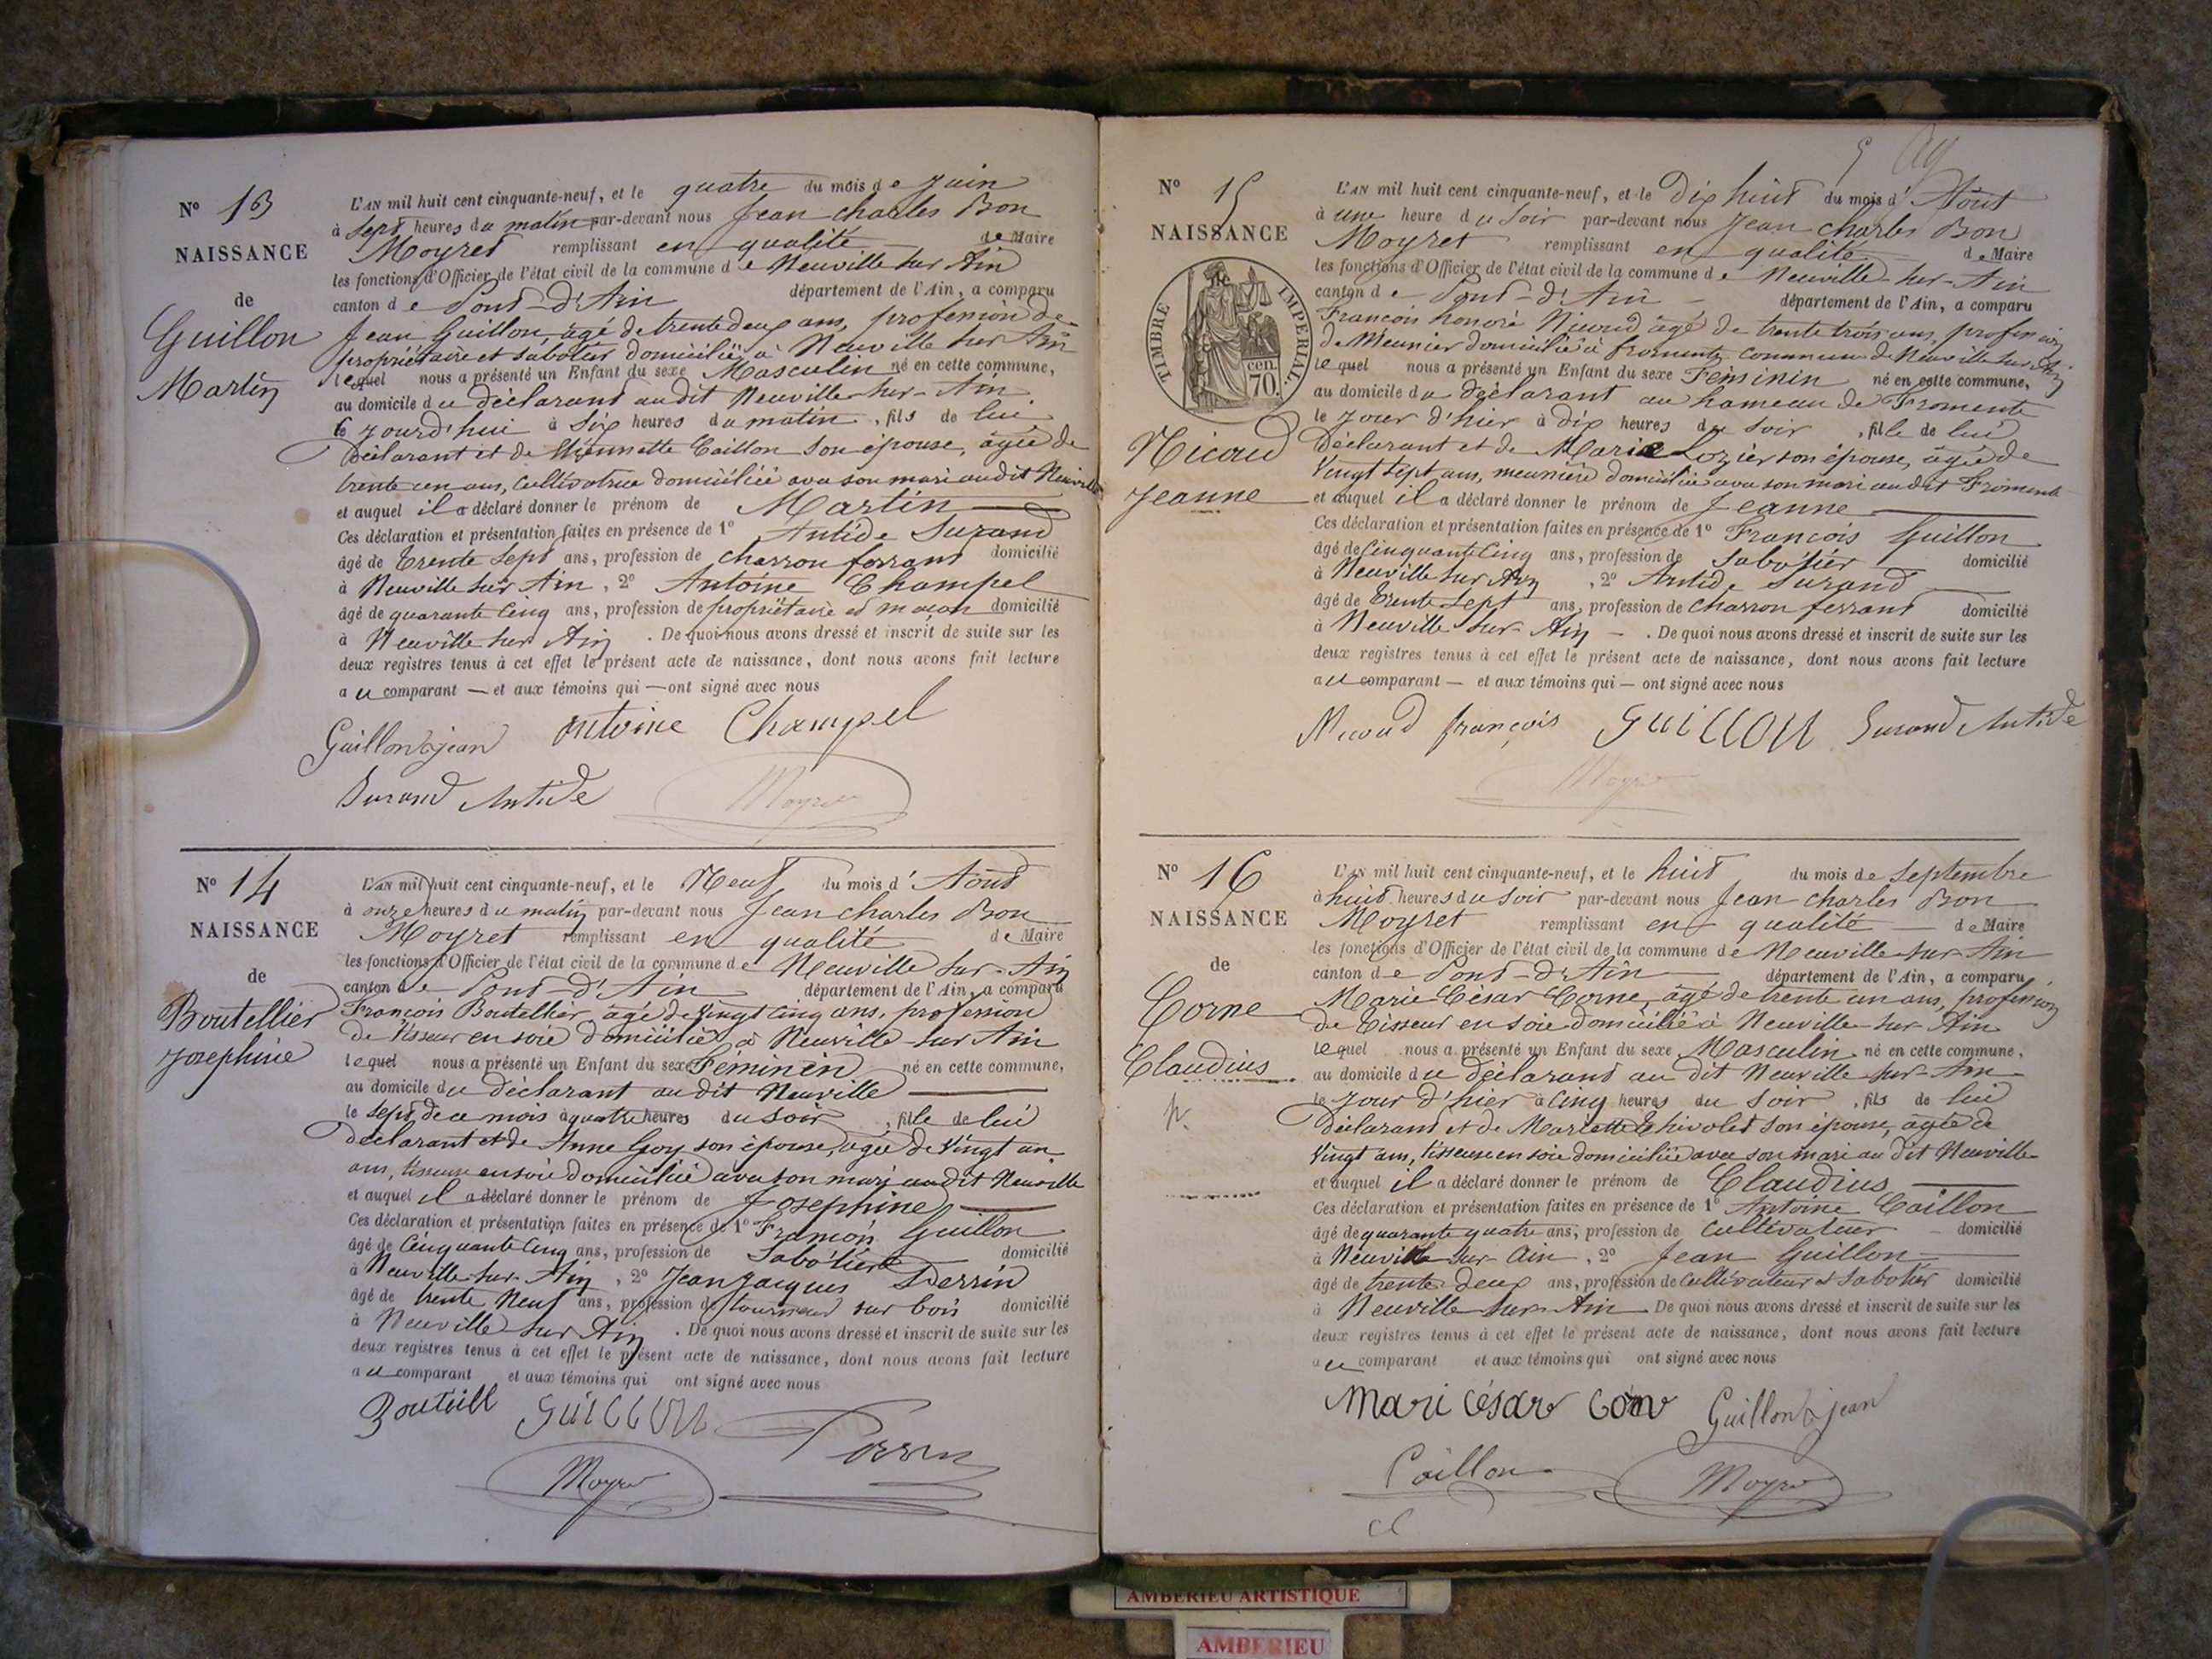 N° 13
NAISSANCE
de
Guillon
Martin
L'AN mil huit cent cinquante-neuf, et le quatre du mois de Juin
à sept heures du matin par-devant nous Jean charles Bon
Moyret remplissant en qualité de Maire
les fonctions d'Officier de l'état civil de la commune de Neuville sur Ain
canton de Pont-d'Ain département de l'Ain, a comparu
Jean Guillon, âgé de trente deux ans, profession de
propriétaire et sabotier domicilié à Neuville sur Ain
lequel nous a présenté un Enfant du sexe Masculin né en cette commune,
au domicile du déclarant audit Neuville-sur-Ain
le jourd'hui à six heures du matin, fils de lui
Déclarant et de Etiennette Caillon son épouse, âgée de
trente un ans, cultivatrice domiciliée avec son mari audit Neuville
et auquel il a déclaré donner le prénom de Martin
Ces déclaration et présentation faites en présence de 1° Antide Surand
âgé de trente sept ans, profession de charron ferrant domicilié
à Neuville sur Ain, 2° Antoine Champel
âgé de quarante cinq ans, profession de propriétaire et maçon domicilié
à Neuville sur Ain. De quoi nous avons dressé et inscrit de suite sur les
deux registres tenus à cet effet le présent acte de naissance, dont nous avons fait lecture
au comparant — et aux témoins qui — ont signé avec nous
Guillon jean antoine Champel
Surand Antide Moyret
N° 14
NAISSANCE
de
Boutellier
Josephine
L'AN mil huit cent cinquante-neuf, et le Neuf du mois d'Août
à onze heures du matin par-devant nous Jean charles Bon
Moyret remplissant en qualité de Maire
les fonctions d'Officier de l'état civil de la commune de Neuville sur-Ain
canton de Pont-d'Ain département de l'Ain, a comparu
François Boutellier, âgé de vingt cinq ans, profession
de tisseur en soie domicilié à Neuville-sur Ain
lequel nous a présenté un Enfant du sexe Féminin né en cette commune,
au domicile du déclarant audit Neuville
le sept de ce mois à quatre heures du soir, fille de lui
déclarant et de Anne Goy son épouse, agée de vingt un
ans, tisseuse en soie domiciliée avec son mari audit Neuville
et auquel il a déclaré donner le prénom de Josephine
Ces déclaration et présentation faites en présence de 1° François Guillon
âgé de cinquante cinq ans, profession de Sabotier domicilié
à Neuville-sur-Ain, 2° Jean Jacques Perrin
âgé de trente neuf ans, profession de tourneur sur bois domicilié
à Neuville sur Ain. De quoi nous avons dressé et inscrit de suite sur les
deux registres tenus à cet effet le présent acte de naissance, dont nous avons fait lecture
au comparant et aux témoins qui ont signé avec nous
Bouteill GUILLON Perrin
Moyret
N° 15
NAISSANCE
TIMBRE IMPERIAL.
cen. 70.
Nicoud
Jeanne
L'AN mil huit cent cinquante-neuf, et le Dix huit du mois d'Août
à une heure du soir par-devant nous Jean charles Bon
Moyret remplissant en qualité de Maire
les fonctions d'Officier de l'état civil de la commune de Neuville-sur-Ain
canton de Pont-d'Ain département de l'Ain, a comparu
François honoré Nicoud âgé de trente trois ans, profession
de Meunier domicilié à fromente commune de Neuville sur Ain
lequel nous a présenté un Enfant du sexe Féminin né en cette commune,
au domicile du déclarant au hameau de Fromente
le jour d'hier à dix heures du soir, fille de lui
Déclarant et de Marie Lozier son épouse, âgée de
vingt sept ans, meunière domiciliée avec son mari audit Fromente
et auquel il a déclaré donner le prénom de Jeanne
Ces déclaration et présentation faites en présence de 1° François Guillon
âgé de Cinquante Cinq ans, profession de Sabotier domicilié
à Neuville sur Ain, 2° Antide Surand
âgé de trente sept ans, profession de charron ferrant domicilié
à Neuville sur-Ain. De quoi nous avons dressé et inscrit de suite sur les
deux registres tenus à cet effet le présent acte de naissance, dont nous avons fait lecture
au comparant — et aux témoins qui — ont signé avec nous
Nicoud françois GUILLON Surand Antide
Moyret
N° 16
NAISSANCE
de
Corne
Claudius
L'AN mil huit cent cinquante-neuf, et le huit du mois de Septembre
à huit heures du soir par-devant nous Jean charles Bon
Moyret remplissant en qualité de Maire
les fonctions d'Officier de l'état civil de la commune de Neuville-sur-Ain
canton de Pont-d'Ain département de l'Ain, a comparu
Marie César Corne, âgé de trente un ans, profession
de Tisseur en soie domicilié à Neuville sur-Ain
lequel nous a présenté un Enfant du sexe Masculin né en cette commune,
au domicile du déclarant au dit Neuville-sur-Ain
le jour d'hier à cinq heures du soir, fils de lui
Déclarant et de Mariette Chivolet son épouse, âgée de
vingt ans, tisseuse en soie domiciliée avec son mari au dit Neuville
et auquel il a déclaré donner le prénom de Claudius
Ces déclaration et présentation faites en présence de 1° Antoine Caillon
âgé de quarante quatre ans, profession de cultivateur domicilié
à Neuville-sur-Ain, 2° Jean Guillon
âgé de trente deux ans, profession de cultivateur et sabotier domicilié
à Neuville sur-Ain De quoi nous avons dressé et inscrit de suite sur les
deux registres tenus à cet effet le présent acte de naissance, dont nous avons fait lecture
au comparant et aux témoins qui ont signé avec nous
mari césar Guillon jean
Caillon Moyret
AMBERIEU ARTISTIQUE
AMBERIEU